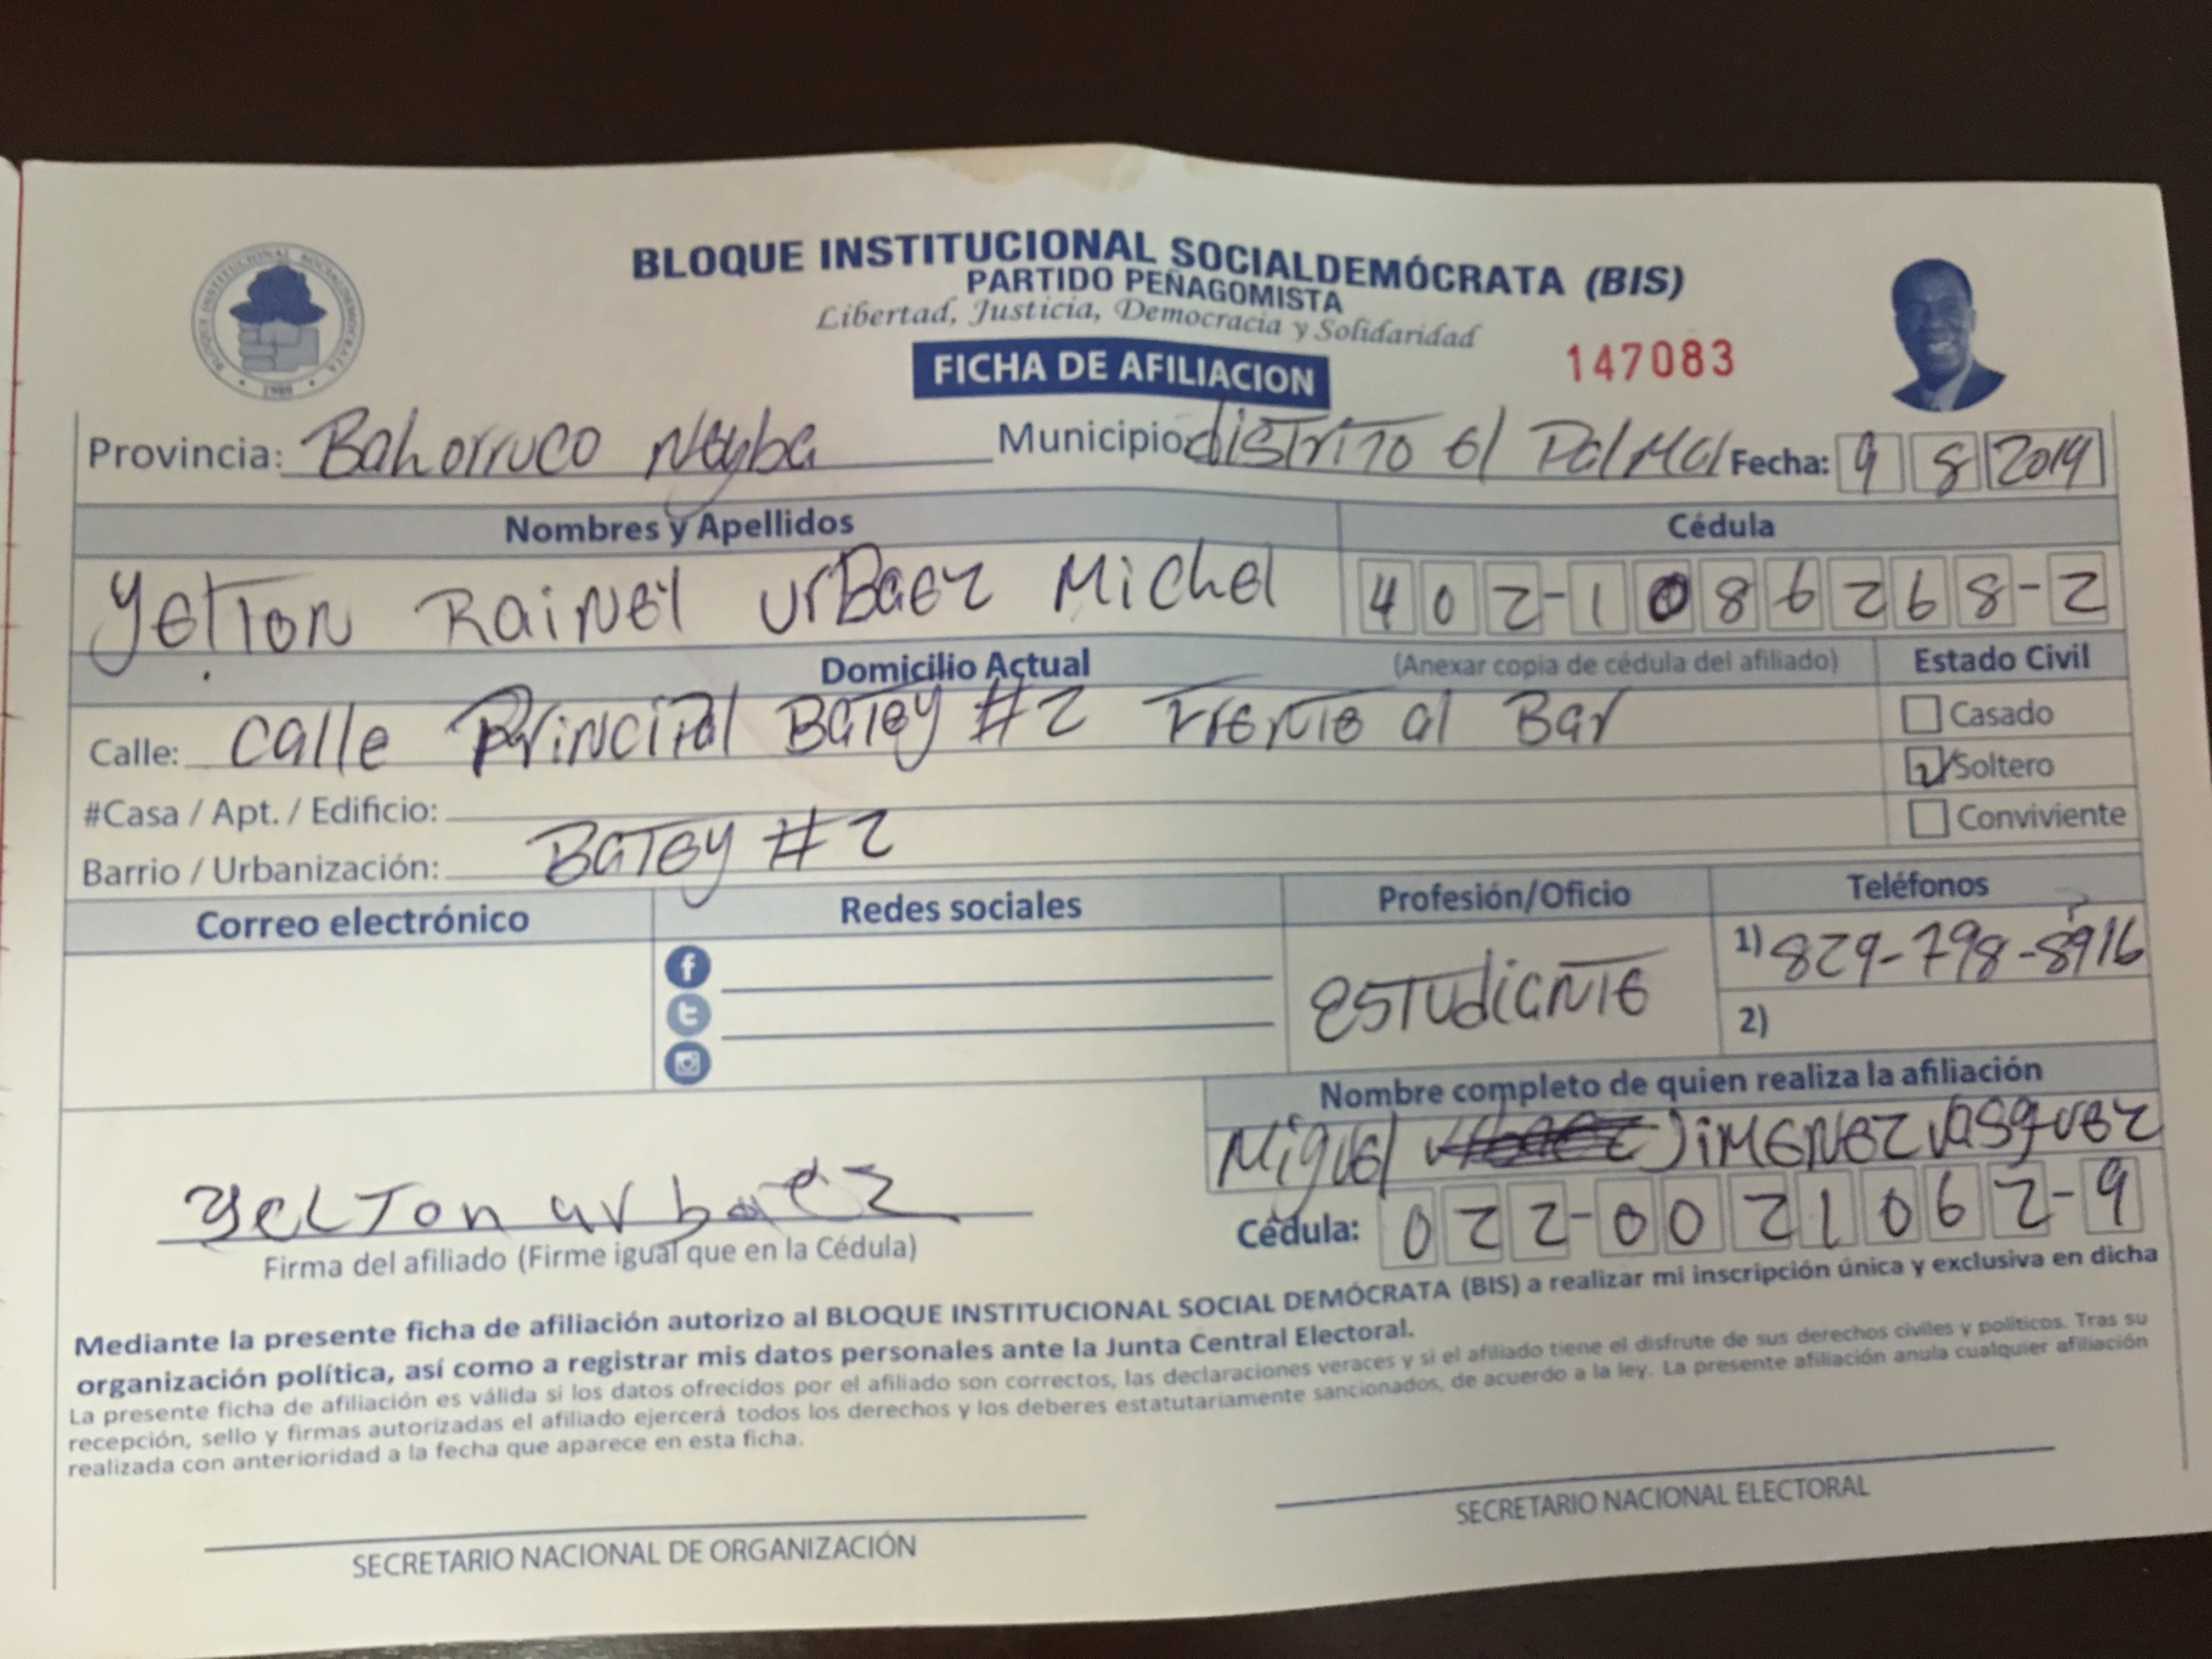 BLOQUE INSTITUCIONAL SOCIALDEMÓCRATA (BIS)
PARTIDO PEÑAGOMISTA
Libertad, Justicia, Democracia y Solidaridad
BLOQUE INSTITUCIONAL SOCIALDEMOCRATA
1989
FICHA DE AFILIACION
147083
Provincia: Bahorruco Neyba Municipio distrito el Palmal Fecha: 9 8 2019
Nombres y Apellidos Cédula
Yelton Rainel urBaez Michel 402-1086268-2
Domicilio Actual (Anexar copia de cédula del afiliado) Estado Civil
Calle: calle Principal Batey #2 Frente al Bar
Casado
Soltero
#Casa / Apt. / Edificio:
Conviviente
Barrio / Urbanización: Batey #2
Correo electrónico Redes sociales Profesión/Oficio Teléfonos
1) 829-798-8916
Estudiante
2)
Nombre completo de quien realiza la afiliación
Miguel JiMENEZ VASquez
yelton urbaez
Cédula: 022-0021062-9
Firma del afiliado (Firme igual que en la Cédula)
Mediante la presente ficha de afiliación autorizo al BLOQUE INSTITUCIONAL SOCIAL DEMÓCRATA (BIS) a realizar mi inscripción única y exclusiva en dicha
organización política, así como a registrar mis datos personales ante la Junta Central Electoral.
La presente ficha de afiliación es válida si los datos ofrecidos por el afiliado son correctos, las declaraciones veraces y si el afiliado tiene el disfrute de sus derechos civiles y políticos. Tras su
recepción, sello y firmas autorizadas el afiliado ejercerá todos los derechos y los deberes estatutariamente sancionados, de acuerdo a la ley. La presente afiliación anula cualquier afiliación
realizada con anterioridad a la fecha que aparece en esta ficha.
SECRETARIO NACIONAL DE ORGANIZACIÓN
SECRETARIO NACIONAL ELECTORAL